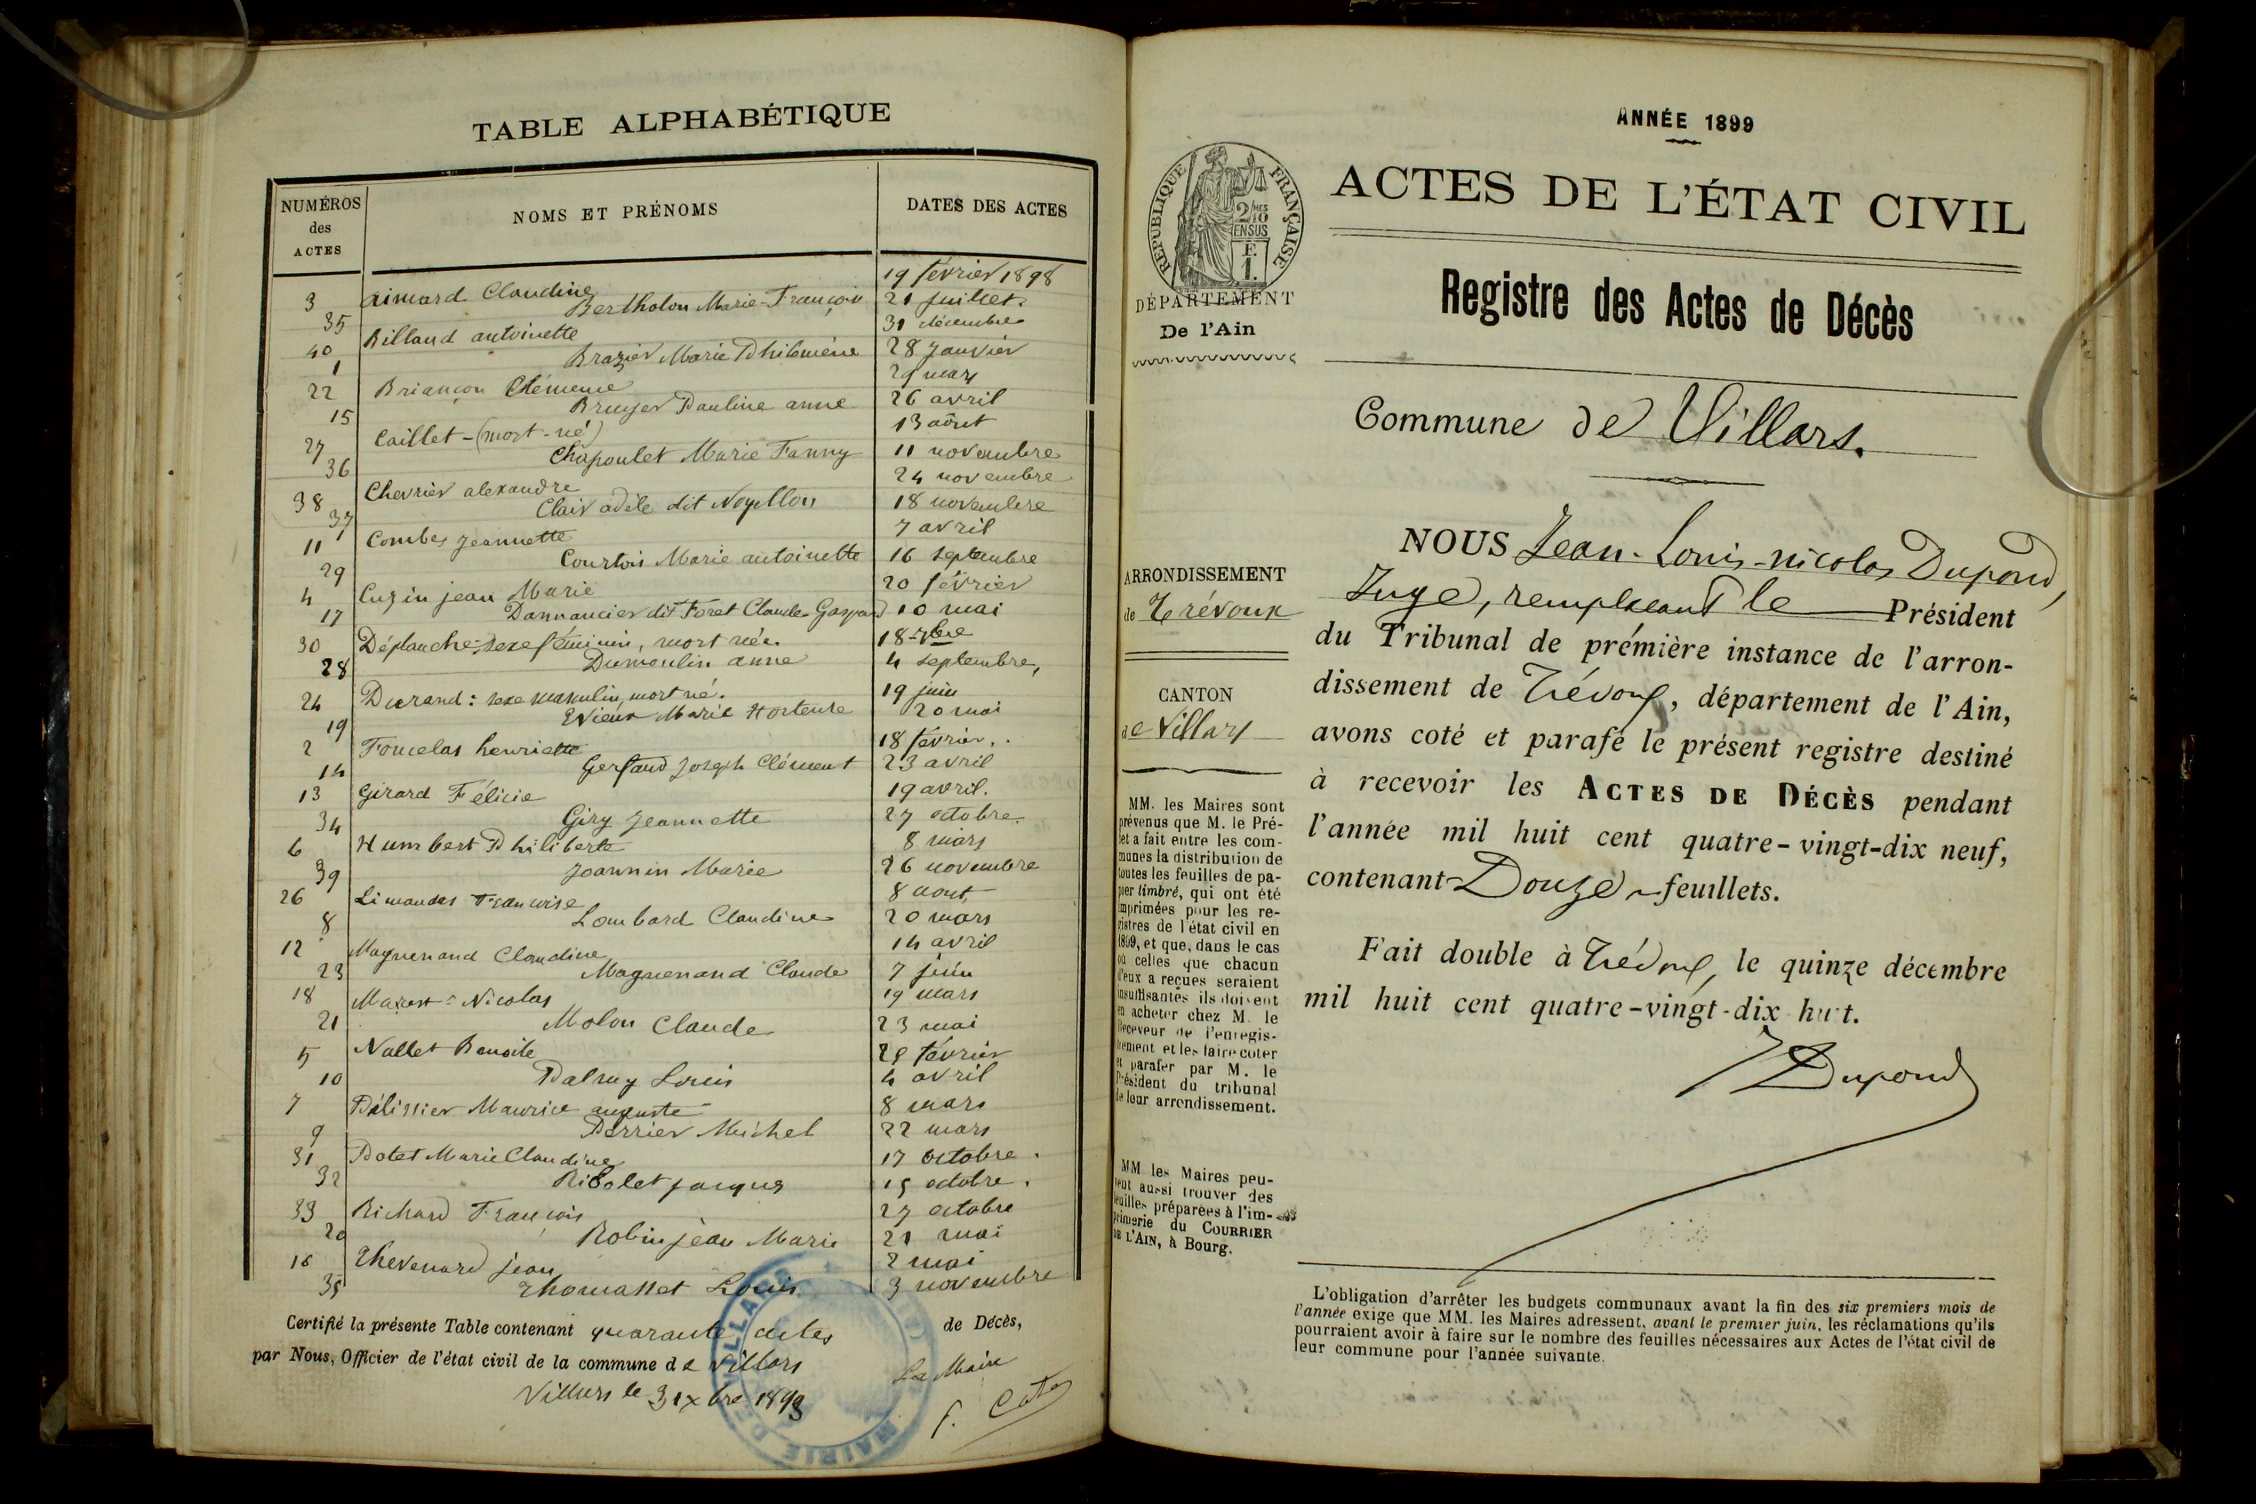 TABLE ALPHABÉTIQUE
NUMÉROS des ACTES
NOMS ET PRÉNOMS
DATES DES ACTES
3 Aimard Claudine 19 février 1898
35 Bertholon Marie-François 21 juillet
40 Billaud antoinette 31 décembre
1 Brazier Marie Philomène 28 Janvier
22 Briançon Clémence 29 mars
15 Bruyer Pauline anne 26 avril
27 Caillet - (mort-né) 13 août
36 Chapoulet Marie Fanny 11 novembre
38 Chevrier alexandre 24 novembre
37 Clair adèle dit Noyellon 18 novembre
11 Combes Jeannette 7 avril
29 Courtois Marie antoinette 16 septembre
4 Cuzin jean Marie 20 février
17 Dannancier dit Foret Claude-Gaspard 10 mai
30 Déplanche, sexe féminin, mort née. 18 - 7bre
28 Dumoulin anne 4 septembre,
24 Durand : sexe masculin, mort né. 19 juin
19 Evieux Marie Hortense 20 mai
2 Foncelas henriette 18 février.
14 Gerfaud Joseph Clément 23 avril
13 Girard Félicie 19 avril.
34 Giry Jeannette 27 octobre.
6 Humbert Philiberte 8 mars
39 Joannin Marie 26 novembre
26 Limandas Françoise 8 aout
8 Lombard Claudine 20 mars
12 Maguenand Claudine 14 avril
23 Maguenand Claude 7 juin
18 Nicolas 19 mars
21 Molon Claude 23 mai
5 Nallet Benoite 28 février
10 Palmy Louis 4 avril
7 Pélissier Maurice auguste 8 mars
9 Perrier Michel 22 mars
31 Potet Marie Claudine 17 octobre.
32 Ribolet jacques 19 octobre.
33 Richard François 27 octobre
20 Robin jean Marie 21 mai
16 Thevenard jean 2 mai
35 Thomasset Louis 3 novembre
Certifié la présente Table contenant quarante actes de Décès,
par Nous, Officier de l'état civil de la commune de Villars
Villars le 31 xbre 1898
Le Maire
MAIRIE DE VILLARS (AIN)
ANNÉE 1899
RÉPUBLIQUE FRANÇAISE
2/10 EN SUS
E
1.
ACTES DE L'ÉTAT CIVIL
DÉPARTEMENT
De l'Ain
Registre des Actes de Décès
Commune de Villars.
ARRONDISSEMENT
de Trévoux
CANTON
de Villars
MM. les Maires sont
prévenus que M. le Pré-
fet a fait entre les com-
munes la distribution de
toutes les feuilles de pa-
pier timbré, qui ont été
imprimées pour les re-
gistres de l'état civil en
1899, et que, dans le cas
où celles que chacun
d'eux a reçues seraient
insuffisantes ils doivent
en acheter chez M. le
Receveur de l'enregis-
trement et les faire coter
et parafer par M. le
Président du tribunal
de leur arrondissement.
MM. les Maires peu-
vent aussi trouver des
feuilles préparées à l'im-
primerie du COURRIER
DE L'AIN, à Bourg.
NOUS Jean-Louis-nicolas Dupond,
Juge, remplaçant le Président
du Tribunal de première instance de l'arron-
dissement de Trévoux, département de l'Ain,
avons coté et parafé le présent registre destiné
à recevoir les ACTES DE DÉCÈS pendant
l'année mil huit cent quatre-vingt-dix neuf,
contenant Douze feuillets.
Fait double à Trévoux, le quinze décembre
mil huit cent quatre-vingt-dix huit.
Dupond
L'obligation d'arrêter les budgets communaux avant la fin des six premiers mois de
l'année exige que MM. les Maires adressent, avant le premier juin, les réclamations qu'ils
pourraient avoir à faire sur le nombre des feuilles nécessaires aux Actes de l'état civil de
leur commune pour l'année suivante.